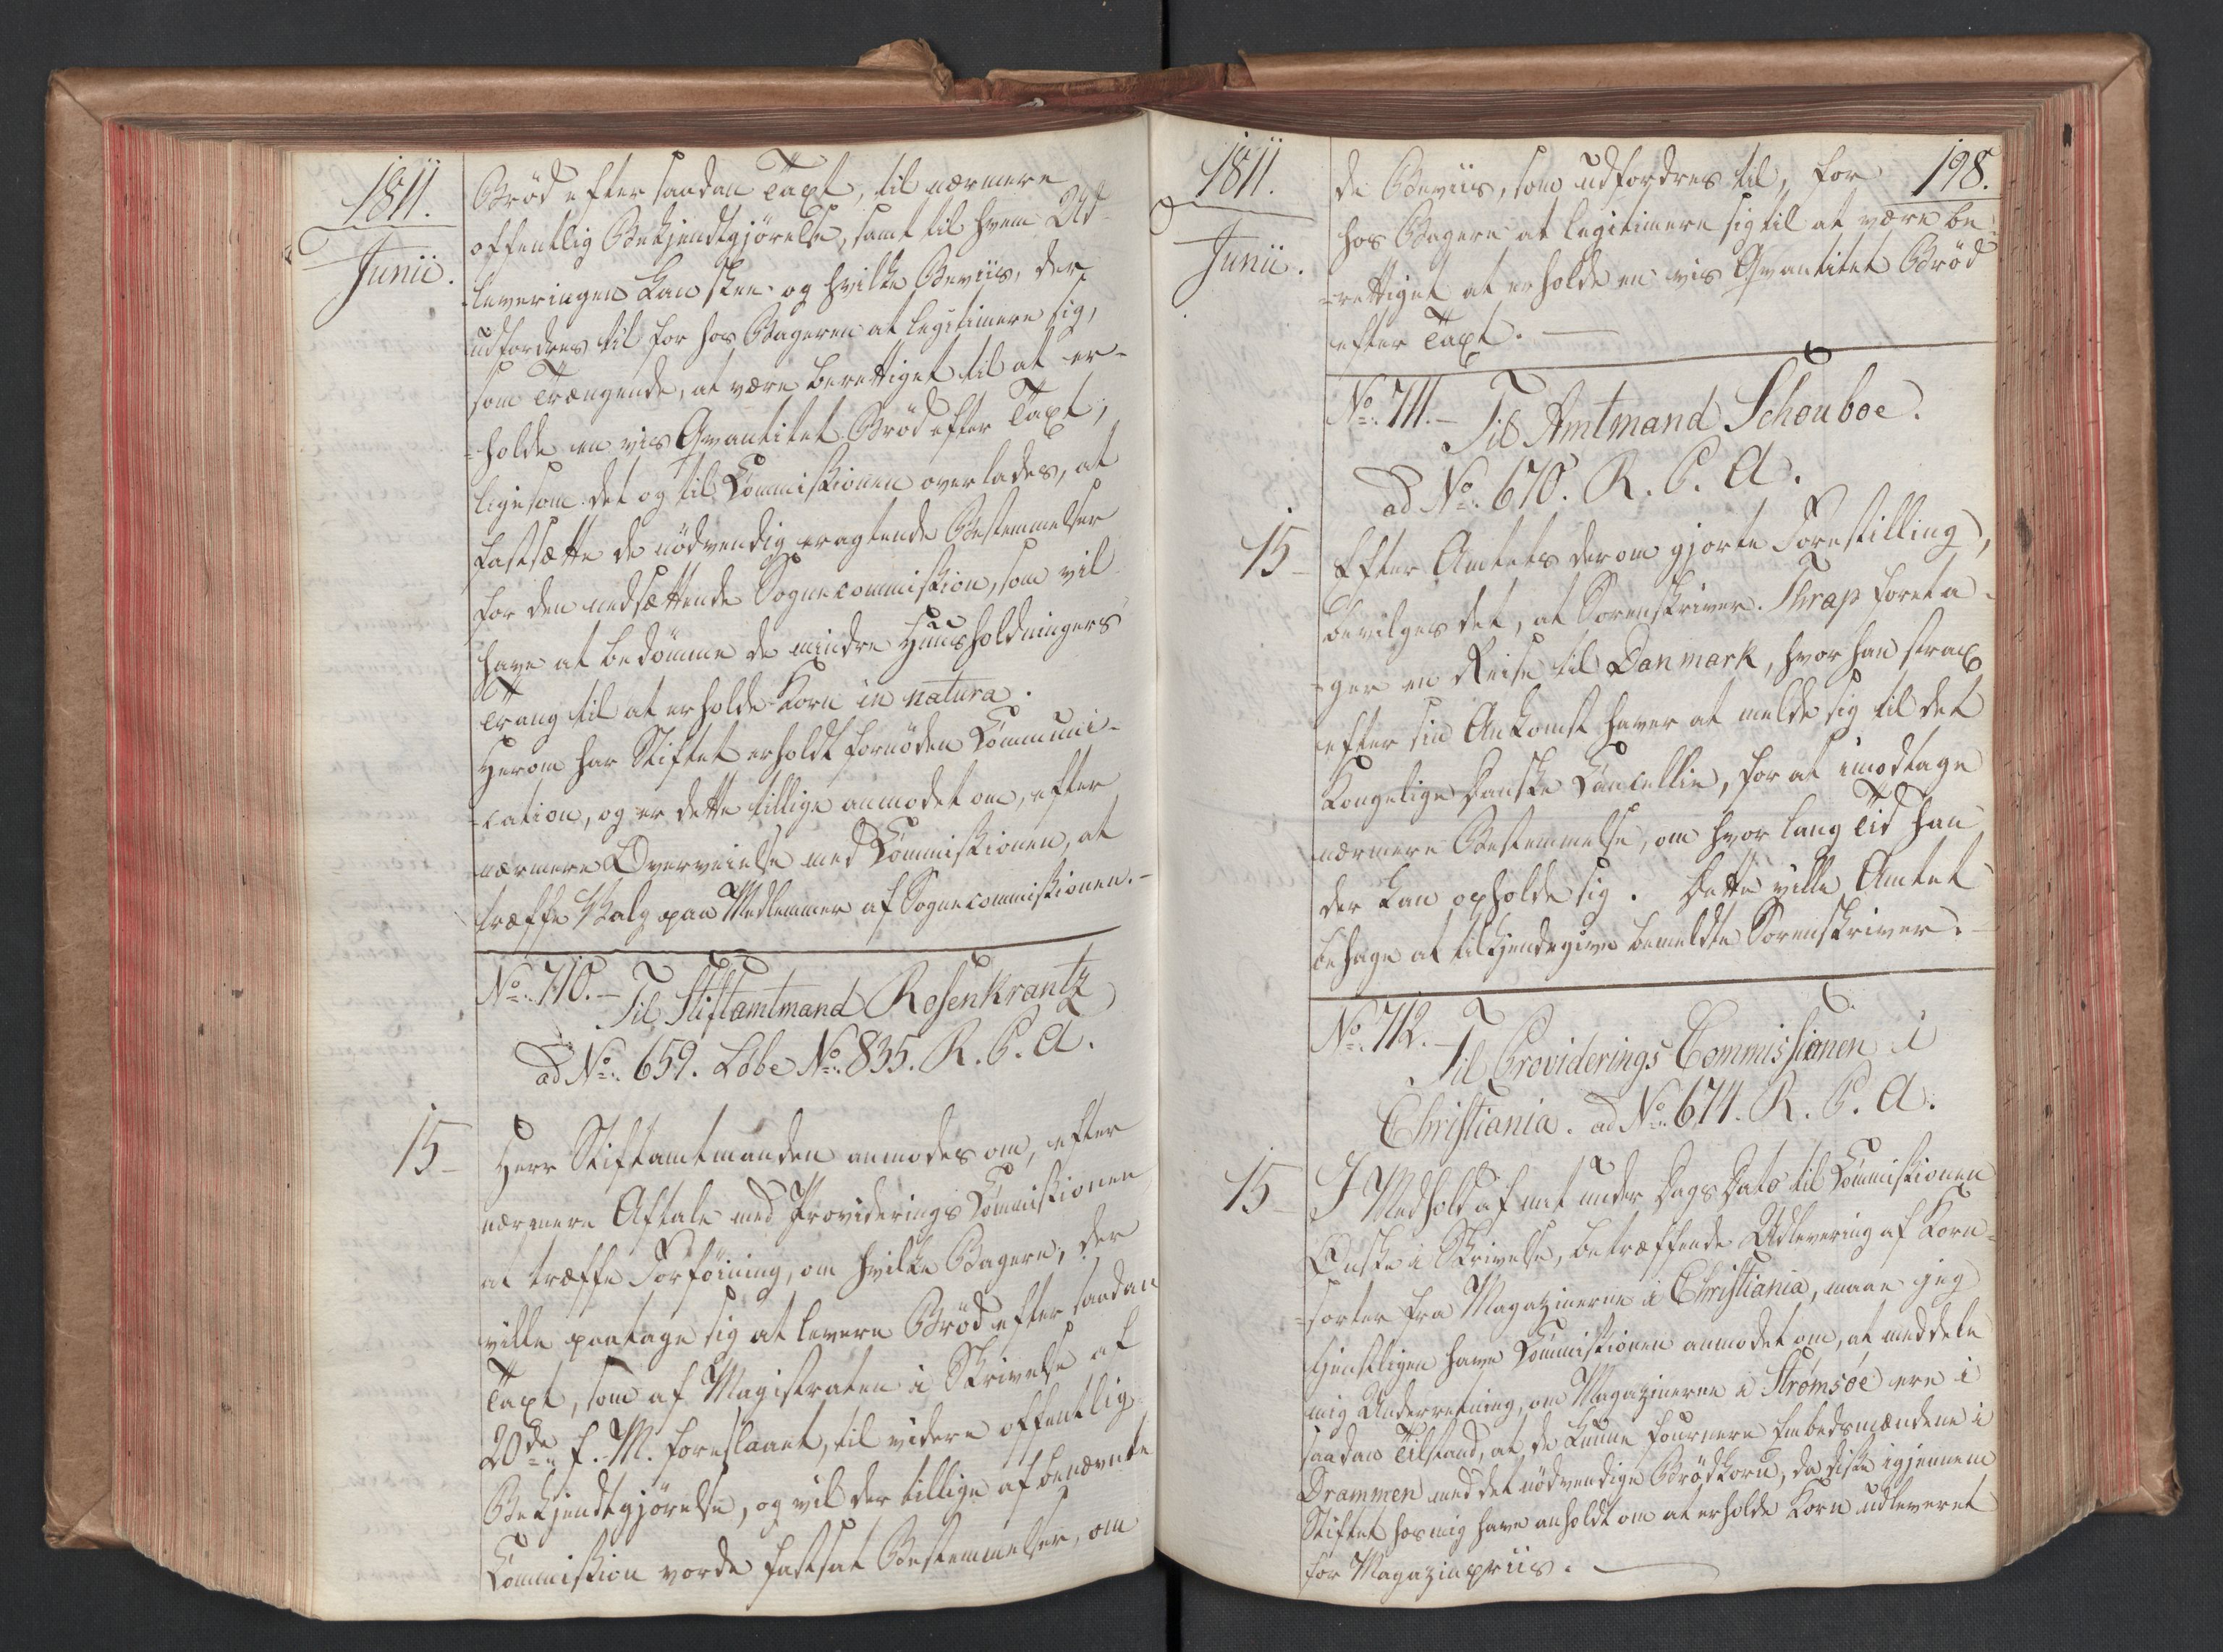 1811.
Junii.
Brød efter saadan Taxt, til nærmere
offentlig Bekjendtgjørelse, samt til hvem Ud-
leveringen kan skee og hvilke Beviis, der
udfordres til for hos Bageren at legitimere sig,
som Trængende, at være berettiget til at er-
=holde en vis Qvantitet Brød efter Taxt,
ligesom det og til Commissionen overlades, at
fastsætte de nødvendig eragtende Bestemmelser
for den nedsættende Sognecommission, som vil
have at bedømme de mindre Huusholdningers
Trang til at erholde Korn in natura.
Herom har Stiftet erholdt fornøden Communi-
=cation, og er dette tillige anmodet om, efter
nærmere Overveielse med Commissionen, at
træffe Valg paa Medlemmer af Sognecommissionen.-
No. 710.- Til Stiftamtmand Rosenkrantz
ad No. 659. Løbe No. 835. R. P. A.
15- Herr Stiftamtmanden anmodes om, efter
nærmere Aftale med Providerings Commissionen
at træffe Forføining, om hvilke Bagere, der
ville paatage sig at levere Brød efter saadan
Taxt, som af Magistraten i Skrivelse af
20de f. M. foreslaaet, til videre offentlig
Bekjendtgjørelse, og vil der tillige af benævnte
Commission vorde fastsat Bestemmelser, om
1811.
Junii.
198.
de Beviis, som udfordres til, for
hos Bagere at legitimere sig til at være be-
=rettiget at erholde en vis Qvantitet Brød
efter Taxt.
No. 711.- Til Amtmand Schouboe.
ad No. 670. R. P. A.
15- Efter Amtets derom gjorte Forestilling,
bevilges det, at Sorenskriver Thrap foreta-
=ger en Reise til Danmark, hvor han strax
efter sin Ankomst haver at melde sig til det
Kongelige Danske Cancellie, for at imodtage
nærmere Bestemmelse, om hvor lang Tid han
der kan opholde sig. Dette ville Amtet
behage at tilkjendegive bemeldte Sorenskriver.-
No. 712.- Til Providerings Commissionen i
Christiania. ad No. 674. R. P. A.
15- I Medhold af mit under Dags Dato til Commissionen
Ønske i Skrivelse, betræffende Udlevering af Korn-
=sorter fra Magazinerne i Christiania, maae jeg
tjenstligen have Commissionen anmodet om, at meddele
mig Underretning, om Magazinerne i Strømsöe ere i
saadan Tilstand, at de kunne fournere Embedsmændene i
Drammen med det nødvendige Brødkorn, da disse igjennem
Stiftet hos mig have anholdt om at erholde Korn udleveret
for Magazinpriis.